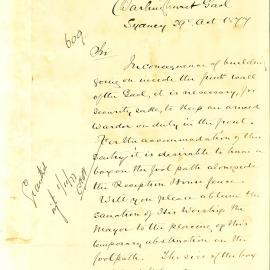 Darlinghurst Gaol
Sydney 29th Oct 1877
609.
Sir
In consequence of building
going on inside the front wall
of the Gaol, it is necessary, for
security sake, to keep an armed
Warder on duty in the front.
For the accommodation of this
sentry it is desirable to have a
box on the foot path alongside
the Reception House fence.
Will you please obtain the
sanction of His Worship the
Mayor to the placing of this
temporary obstruction on the
footpath. The size of the box
Granted